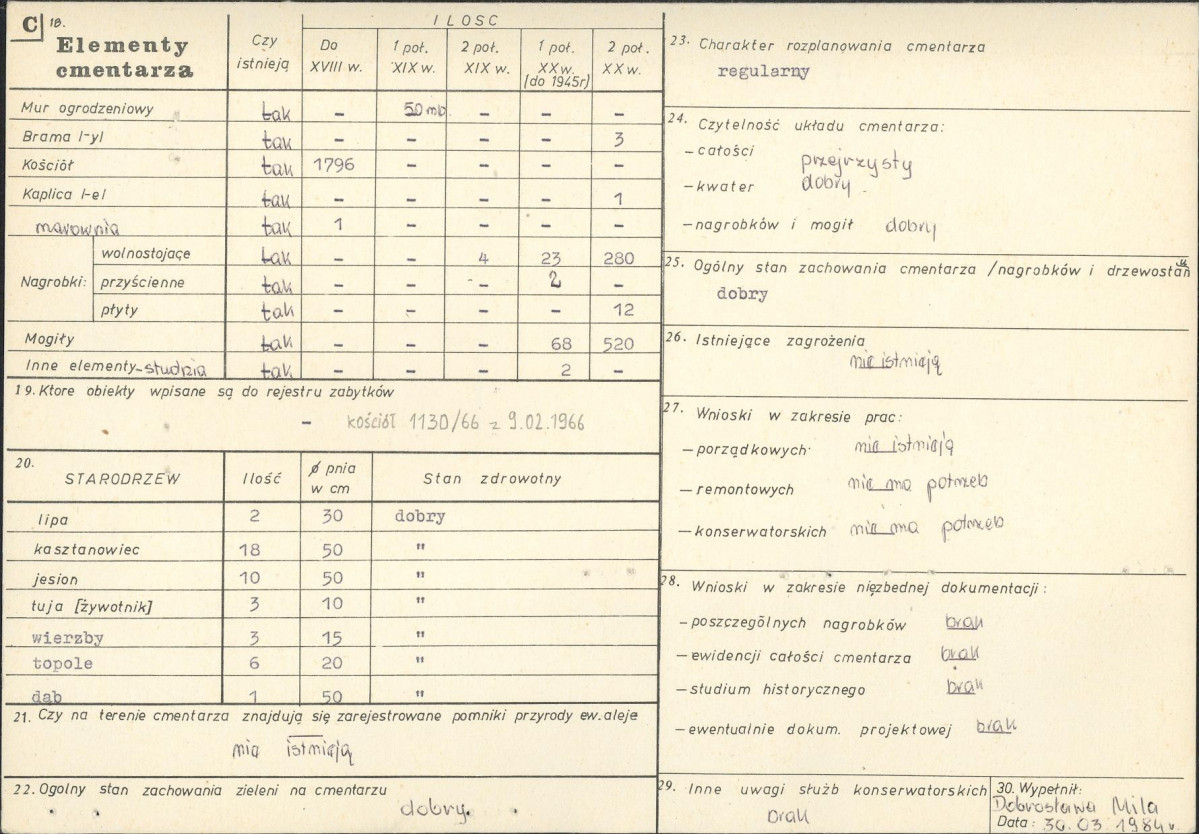 C 18.
Elementy cmentarza
Czy istnieją
ILOSC
Do XVIII w.
1 poł. XIX w.
2 poł. XIX w.
1 poł. XX w. (do 1945r)
2 poł. XX w.
Mur ogrodzeniowy tak – 50 mb. – – –
Brama l-yl tak – – – – 3
Kościół tak 1796 – – – –
Kaplica l-el tak – – – – 1
marownia tak 1 – – – –
Nagrobki:
wolnostojące tak – – 4 23 280
przyścienne tak – – – 2 –
płyty tak – – – – 12
Mogiły tak – – – 68 520
Inne elementy - studnia tak – – – 2 –
19. Ktore obiekty wpisane są do rejestru zabytków
– kościół 1130/66 z 9.02.1966
20.
STARODRZEW Ilość ø pnia w cm Stan zdrowotny
lipa 2 30 dobry
kasztanowiec 18 50 "
jesion 10 50 "
tuja [żywotnik] 3 10 "
wierzby 3 15 "
topole 6 20 "
dąb 1 50 "
21. Czy na terenie cmentarza znajdują się zarejestrowane pomniki przyrody ew. aleje
nie istnieją
22. Ogolny stan zachowania zieleni na cmentarzu
dobry.
23. Charakter rozplanowania cmentarza
regularny
24. Czytelność układu cmentarza:
– całości przejrzysty
– kwater dobry.
– nagrobków i mogił dobry
25. Ogólny stan zachowania cmentarza /nagrobków i drzewostanu
dobry
26. Istniejące zagrożenia
nie istnieją
27. Wnioski w zakresie prac:
– porządkowych nie istnieją
– remontowych nie ma potrzeb
– konserwatorskich nie ma potrzeb
28. Wnioski w zakresie nięzbednej dokumentacji:
– poszczególnych nagrobków brak
– ewidencji całości cmentarza brak
– studium historycznego brak
– ewentualnie dokum. projektowej brak
29. Inne uwagi służb konserwatorskich
brak
30. Wypełnił:
Dobrosława Mila
Data: 30.03.1984 r.